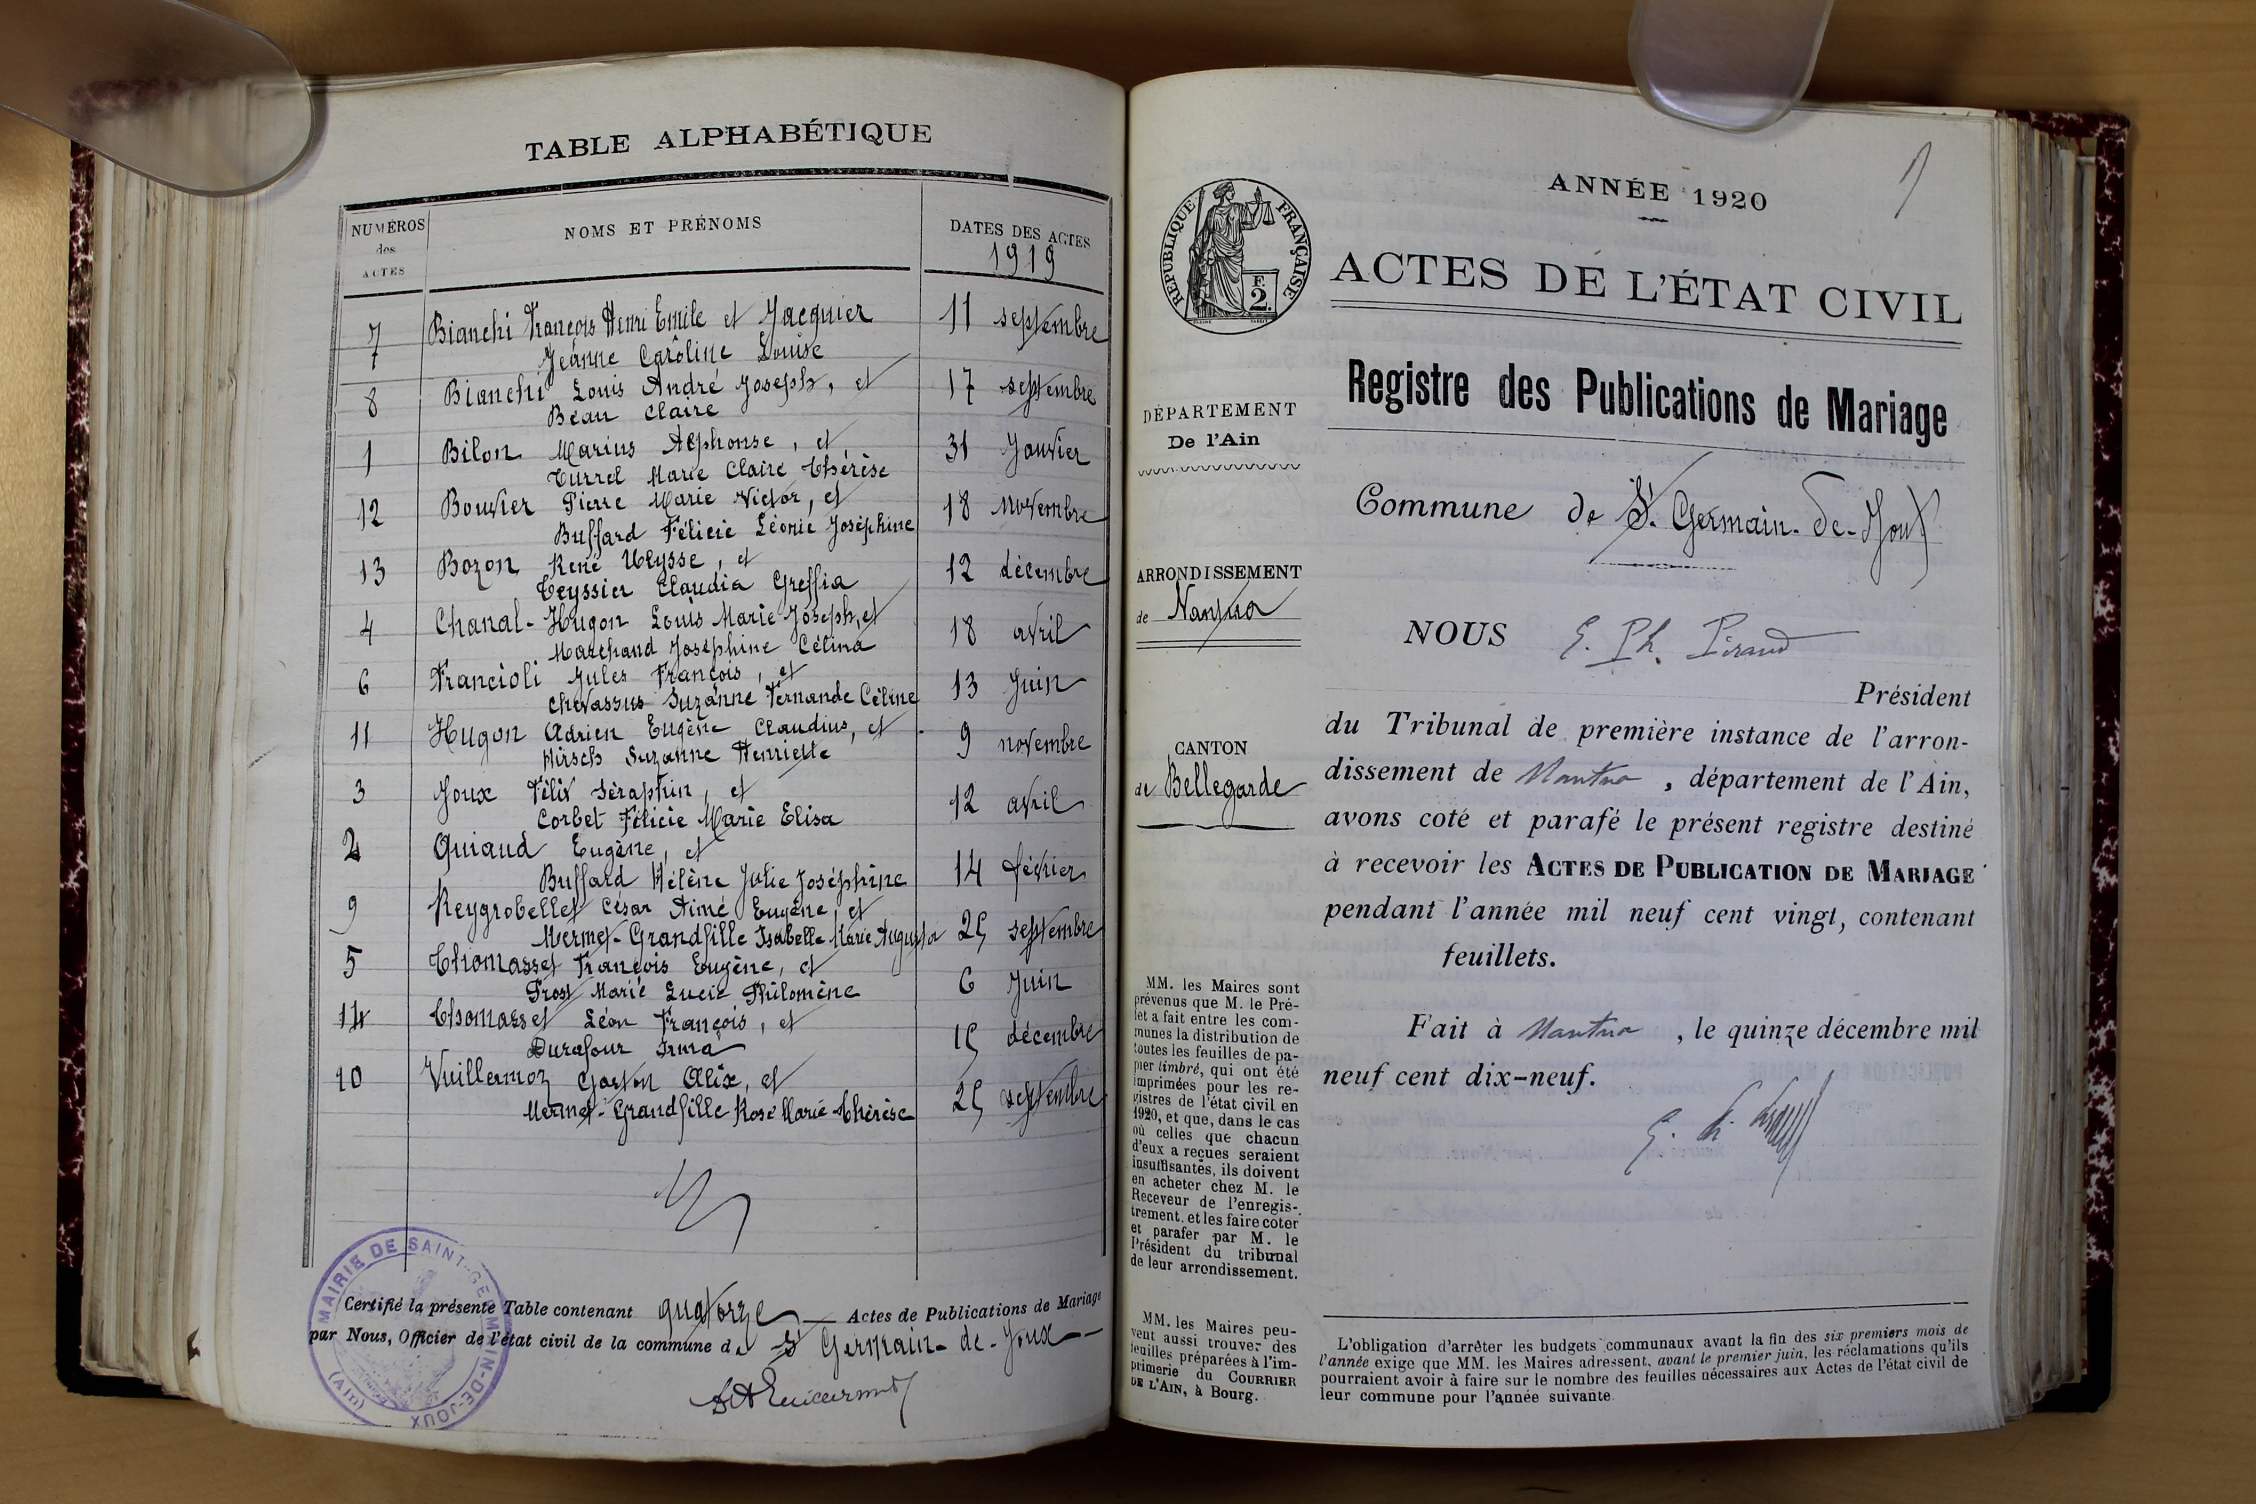 TABLE ALPHABÉTIQUE
NUMÉROS des ACTES
NOMS ET PRÉNOMS
DATES DES ACTES
1919
7 Bianchi François Henri Emile et Jacquier 11 septembre
Jeanne Caroline Louise
8 Bianchi Louis André Joseph, et 17 septembre
Béau Claire
1 Bilon Marius Alphonse, et 31 Janvier
Turrel Marie Claire Thérèse
12 Bouvier Pierre Marie Victor, et 18 novembre
Buffard Félicie Léonie Joséphine
13 Bozon René Ulysse, et 12 décembre
Teyssier Claudia Greffia
4 Chanal-Hugon Louis Marie Joseph, et 18 avril
Marchand Joséphine Célina
6 Francioli Jules François, et 13 Juin
Chevassus Suzanne Fernande Céline
11 Hugon Adrien Eugène Claudius, et 9 novembre
Hirsch Suzanne Henriette
3 Joux Félix Séraphin, et 12 avril
Corbet Félicie Marie Elisa
2 Quiaud Eugène, et
Buffard Hélène Julie Joséphine 14 février
9 Reygrobellet César Aimé Eugène, et
Mermet-Grandfille Isabelle Marie Augusta 25 septembre
5 Thomasset François Eugène, et
Prost Marie Lucie Philomène 6 Juin
14 Thomasset Léon François, et
Durafour Irma 15 décembre
10 Vuillermoz Gaston Alix, et
Mermet-Grandfille Rose Marie Thérèse 25 septembre
MAIRIE DE SAINT-GERMAIN-DE-JOUX
(Ain)
Certifié la présente Table contenant quatorze Actes de Publications de Mariage
par Nous, Officier de l'état civil de la commune de St Germain-de-Joux
1
ANNÉE 1920
RÉPUBLIQUE FRANÇAISE
F. 2.
ACTES DE L'ÉTAT CIVIL
Registre des Publications de Mariage
DÉPARTEMENT
De l'Ain
Commune de St. Germain-de-Joux
ARRONDISSEMENT
de Nantua
CANTON
de Bellegarde
NOUS E. Ph. Piraud
Président
du Tribunal de première instance de l'arron-
dissement de Nantua, département de l'Ain,
avons coté et parafé le présent registre destiné
à recevoir les ACTES DE PUBLICATION DE MARIAGE
pendant l'année mil neuf cent vingt, contenant
feuillets.
Fait à Nantua, le quinze décembre mil
neuf cent dix-neuf.
MM. les Maires sont
prévenus que M. le Pré-
fet a fait entre les com-
munes la distribution de
toutes les feuilles de pa-
pier timbré, qui ont été
imprimées pour les re-
gistres de l'état civil en
1920, et que, dans le cas
où celles que chacun
d'eux a reçues seraient
insuffisantes, ils doivent
en acheter chez M. le
Receveur de l'enregis-
trement, et les faire coter
et parafer par M. le
Président du tribunal
de leur arrondissement.
MM. les Maires peu-
vent aussi trouver des
feuilles préparées à l'im-
primerie du COURRIER
DE L'AIN, à Bourg.
L'obligation d'arrêter les budgets communaux avant la fin des six premiers mois de
l'année exige que MM. les Maires adressent, avant le premier juin, les réclamations qu'ils
pourraient avoir à faire sur le nombre des feuilles nécessaires aux Actes de l'état civil de
leur commune pour l'année suivante.